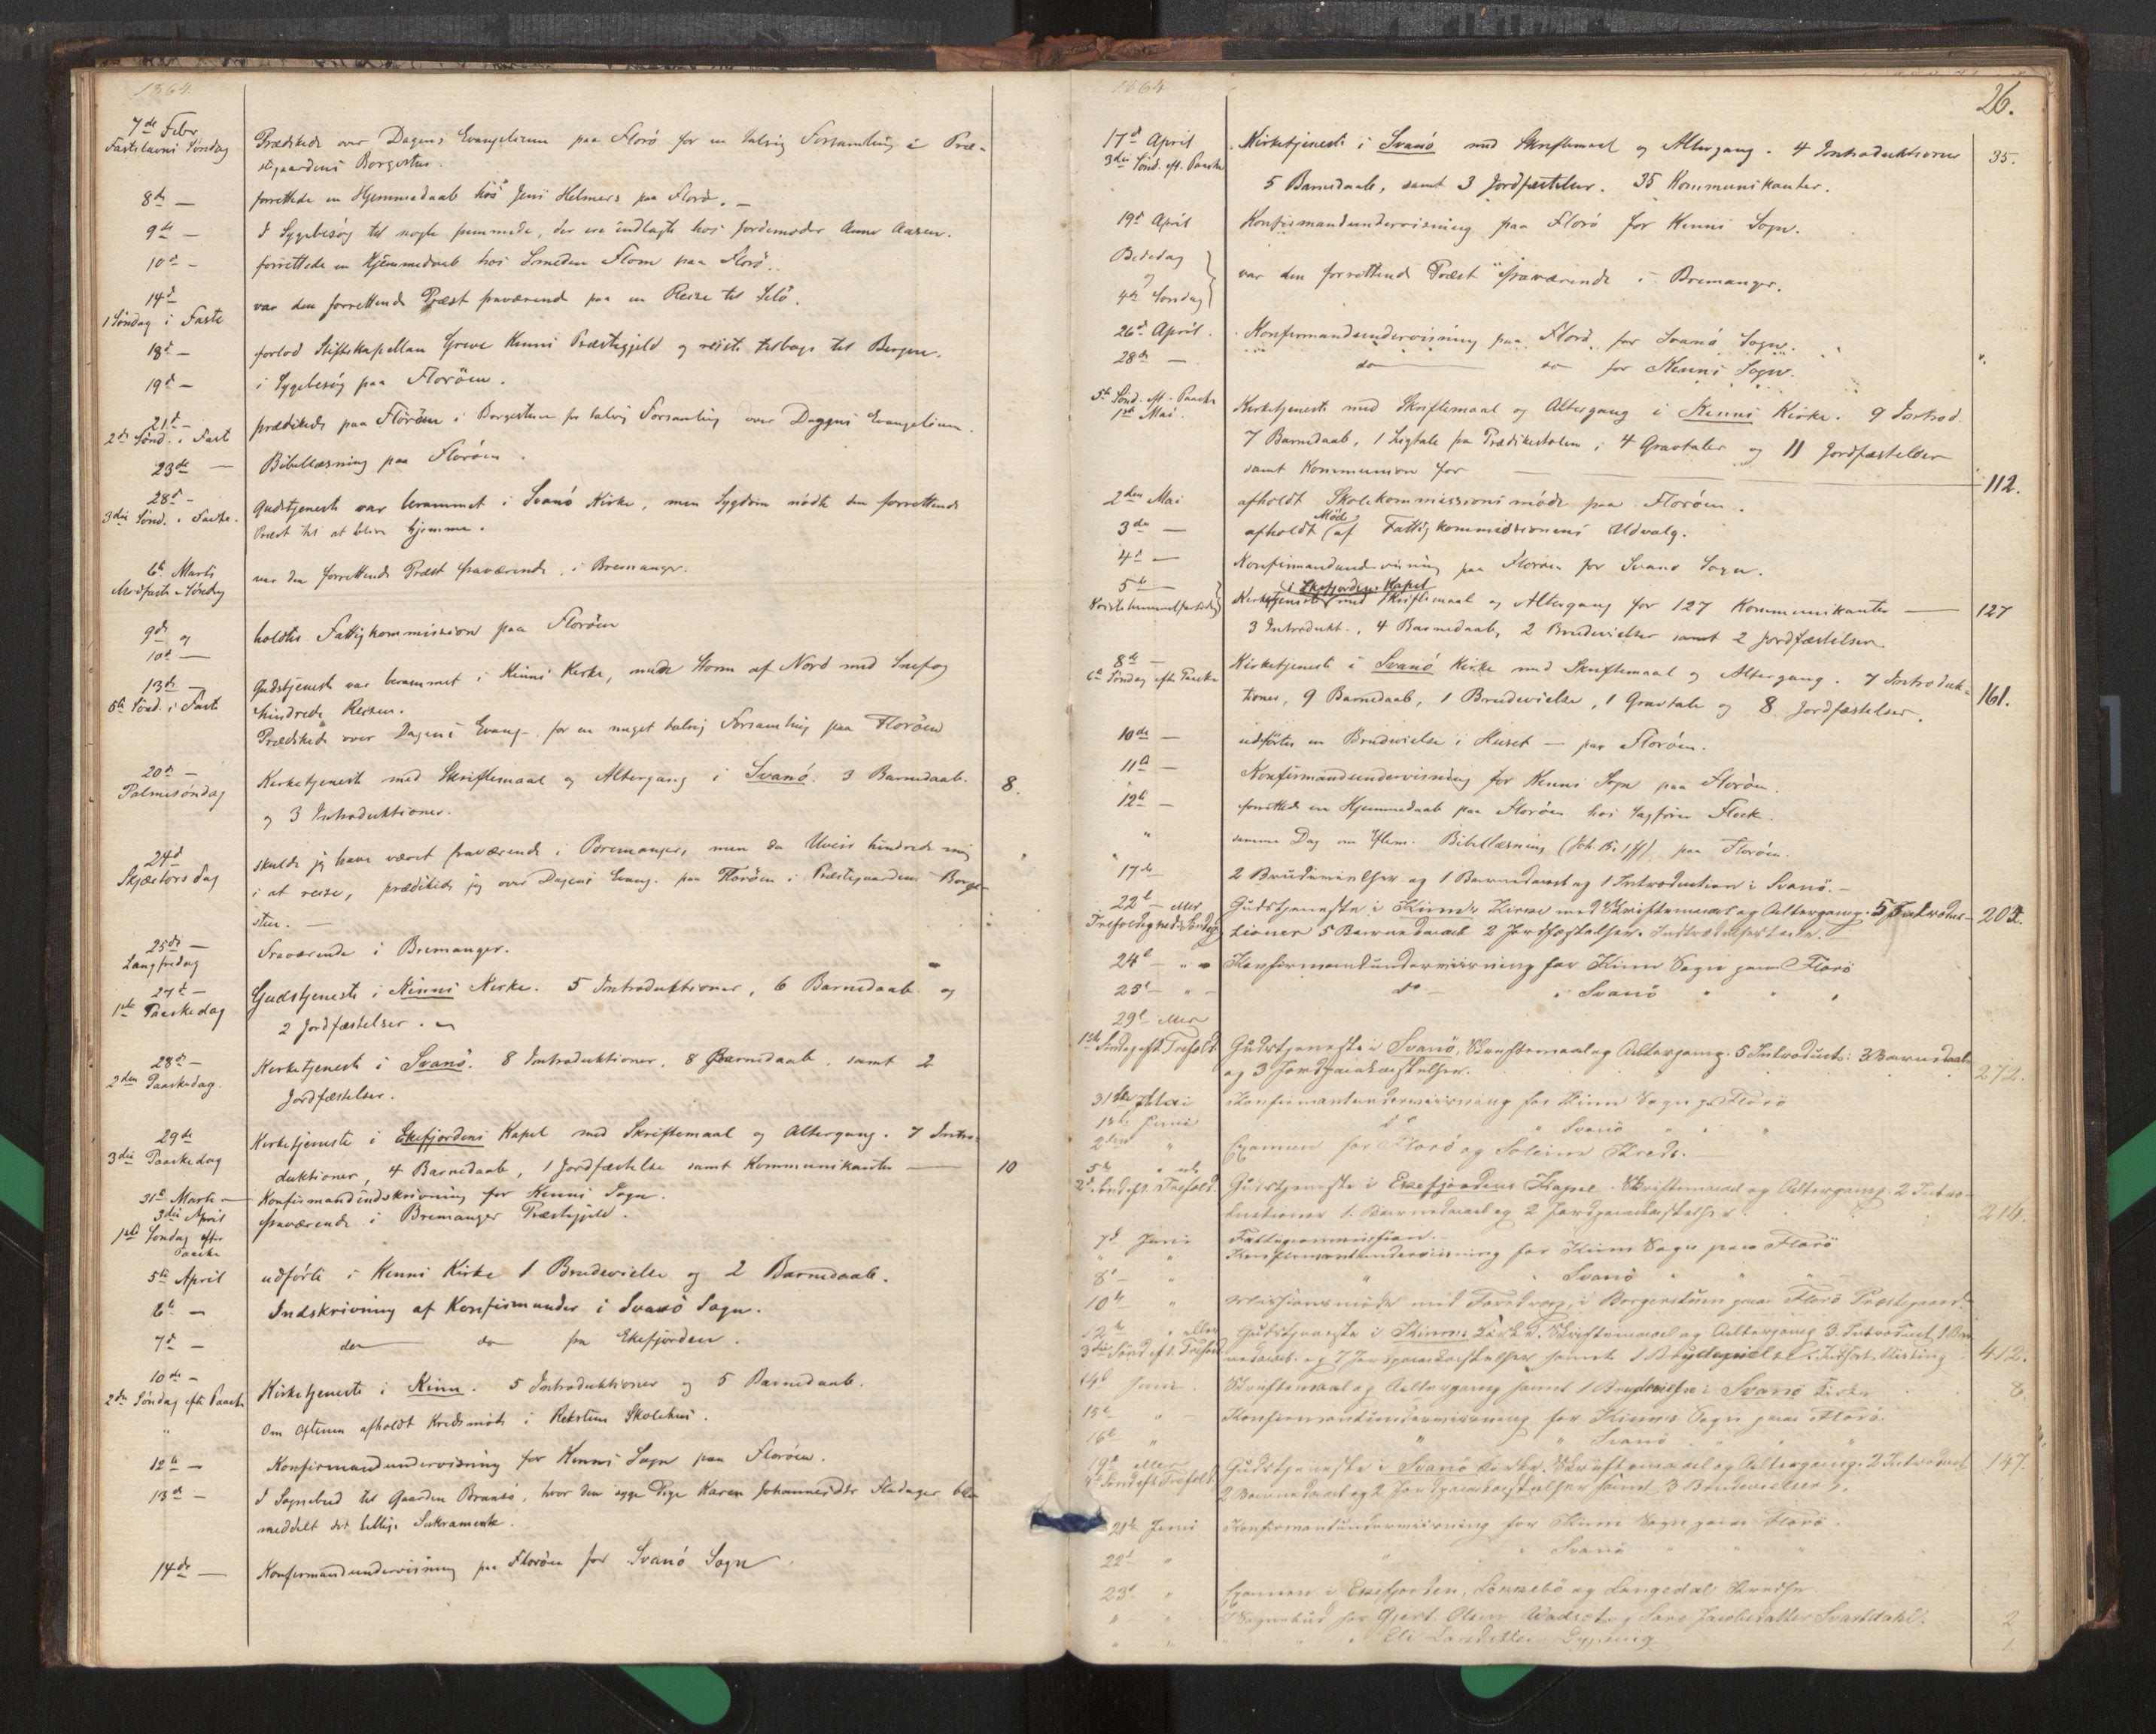 1864.
7de Febr
Fastelavns Søndag
Prædikede over Dagens Evangelium paa Florø for en talrig Forsamling i Præ-
stegaardens Borgestue.
8de — forrettede en Hjemmedaab hos Jens Helmers paa Florø. —
9de — I Sygebesøg til nogle fremmede, der ere indlagte hos Jordemoder Anne Aasen.
10de — forrettede en Hjemmedaab hos Smeden Flom paa Florø.
14de
1 Søndag i Faste
var den forrettende Præst fraværende paa en Reise til Selø.
18de — forlod Stiftskapellan Greve Kinns Præstegjeld og reiste tilbage til Bergen.
19de — i Sygebesøg paa Florøen.
21de —
2den Sønd. i Faste
prædikede paa Florøen i Borgestuen for talrig Forsamling over Dagens Evangelium.
23de — Bibellæsning paa Florøen.
28de —
3die Sønd. i Faste.
Gudstjeneste var berammet i Svanø Kirke, men Sygdom nødte den forrettende
Præst til at blive hjemme.
6te Marts
Midfaste Søndag
var den forrettende Præst fraværende i Bremanger.
9de og
10de —
holdtes Fattigkommission paa Florøen
13de —
5te Sønd. i Faste
Gudstjeneste var berammet i Kinns Kirke, men Storm af Nord med Snefog
hindrede Reisen.
Prædikede over Dagens Evang. for en meget talrig Forsamling paa Florøen
20de —
Palmesøndag
Kirketjeneste med Skriftemaal og Altergang i Svanø. 3 Barnedaab. 8.
og 3 Introduktioner.
24de
Skjærtorsdag
skulde jeg have været fraværende i Bremanger, men da Uveir hindrede mig
i at reise, prædikede jeg over Dagens Evang. paa Florøen i Præstegaardens Borge-
stue. —
25de —
Langfredag
Fraværende i Bremanger.
27de —
1ste Paaskedag
Gudstjeneste i Kinns Kirke. 5 Introduktioner, 6 Barnedaab og
2 Jordfæstelser.
28de —
2den Paaskedag.
Kirketjeneste i Svanø. 8 Introduktioner, 8 Barnedaab, samt 2
Jordfæstelser.
29de
3die Paaskedag
Kirketjeneste i Ekefjordens Kapel med Skriftemaal og Altergang. 7 Intro-
duktioner, 4 Barnedaab, 1 Jordfæstelse samt Kommunikanter — 10
31te Marts — Konfirmandindskrivning for Kinns Sogn.
3die April
1ste Søndag efter
Paaske
fraværende i Bremanger Præstegjeld.
5te April udførte i Kinns Kirke 1 Brudevielse og 2 Barnedaab.
6te — Indskrivning af Konfirmander i Svanø Sogn.
7de — do do fra Ekefjorden.
10de —
2den Søndag efter Paaske
Kirketjeneste i Kinn. 5 Introduktioner og 5 Barnedaab.
" Om Aftenen afholdt Kredsmøde i Rekstens Skolehus.
12te — Konfirmandundervisning for Kinns Sogn paa Florøen.
13de — I Sognebud til Gaarden Brandsø, hvor den syge Pige Karen Johannesdtr blev
meddelt det hellige Sakramente.
14de — Konfirmandundervisning paa Florøen for Svanø Sogn
1864
26.
17de April
3die Sønd. eft. Paaske
Kirketjeneste i Svanø med Skriftemaal og Altergang. 4 Introduktioner 35.
5 Barnedaab, samt 3 Jordfæstelser. 35 Kommunikanter.
19de April Konfirmandundervisning paa Florø for Kinns Sogn.
Bededag
og
4de Søndag
var den forrettende Præst fraværende i Bremanger.
26de April. Konfirmandundervisning paa Florø for Svanø Sogn.
28de — do — do for Kinns Sogn.
5te Sønd. eft. Paaske
1ste Mai.
Kirketjeneste med Skriftemaal og Altergang i Kinns Kirke. 9 Introd.
7 Barnedaab, 1 Ligtale fra Prædikestolen, 4 Gravtaler og 11 Jordfæstelser
samt Kommunion for — 112.
2den Mai afholdt Skolekommissionsmøde paa Florøen.
3die — afholdt Møde af Fattigkommissionens Udvalg.
4de — Konfirmandundervisning paa Florøen for Svanø Sogn.
5te —
Kristi Himmelfartsdag
i Ekefjordens Kapel
Kirketjeneste med Skriftemaal og Altergang for 127 Kommunikanter — 127
3 Introdukt., 4 Barnedaab, 2 Brudevielser samt 2 Jordfæstelser.
8de —
6te Søndag efter Paaske
Kirketjeneste i Svanø Kirke med Skriftemaal og Altergang. 7 Introduk-
tioner, 9 Barnedaab, 1 Brudevielse, 1 Gravtale og 8 Jordfæstelser. 161.
10de — udførtes en Brudevielse i Huset — paa Florøen.
11te — Konfirmandundervisning for Kinns Sogn paa Florøen.
12te — forrettede en Hjemmedaab paa Florøen hos Sagfører Fleck.
" samme Dag om Eftern. Bibellæsning (Joh. 15. 1ff) paa Florøen.
17de 2 Brudevielser og 1 Barnedaab og 1 Introduction i Svanø. —
22de — eller
Trefoldigheds Søndag
Gudstjeneste i Kinns Kirke med Skriftemaal og Altergang. 5 Introduc-
tioner 5 Barnedaab 2 Jordfæstelser. 202.
24de — " Konfirmandundervisning for Kinn Sogn paa Florø
25de — " do — " Svanø " " "
29de Mai
1ste Søndag eft. Trefold.
Gudstjeneste i Svanø, Skriftemaal og Altergang. 5 Introduct: 3 Barnedaab
og 3 Jordpaakastelser. 272.
31te Mai Konfirmantundervisning for Kinn Sogn p. Florø
1ste Juni do " Svanø " " "
2den " Examen for Florø og Solheim Kreds.
5te " eller
2d. Sønd. eft. Trefold.
Gudstjeneste i Ekefjordens Kapel. Skriftemaal og Altergang. 2 Intro-
ductioner 1 Barnedaab og 2 Jordpaakastelser 214.
7de Juni Fattigcommission.
" " Konfirmantundervisning for Kinns Sogn paa Florø
8de — " " " Svanø " "
10de " Missionsmøde med Foredrag i Borgerstuen paa Florø Præstegaard.
12te " eller
3die Sønd. eft. Trefold.
Gudstjeneste i Kinns Kirke. Skriftemaal og Altergang 3 Introduct, 1 Bar-
nedaab og 7 Jordpaakastelser samt 1 Brudevielse. 412.
14de Juni. Skriftemaal og Altergang samt 1 Brudevielse i Svanø Kirke 8.
15de " Konfirmantundervisning for Kinns Sogn paa Florø.
16de " " " Svanø " "
19de eller
4de Sønd. eft. Trefold.
Gudstjeneste i Svanø Kirke. Skriftemaal og Altergang. 2 Introduct 147.
2 Barnedaab og 2 Jordpaakastelser samt 3 Brudevielser.
21de Juni Konfirmantundervisning for Kinn Sogn paa Florø
22de " " Svanø " "
23de " Examen i Ekefjorden, Løkkebø og Langedal Kredse.
" " Sognebud for Gjert Olsen Vadset og Sara Jacobsdatter Svartdahl. 2
" " " 1